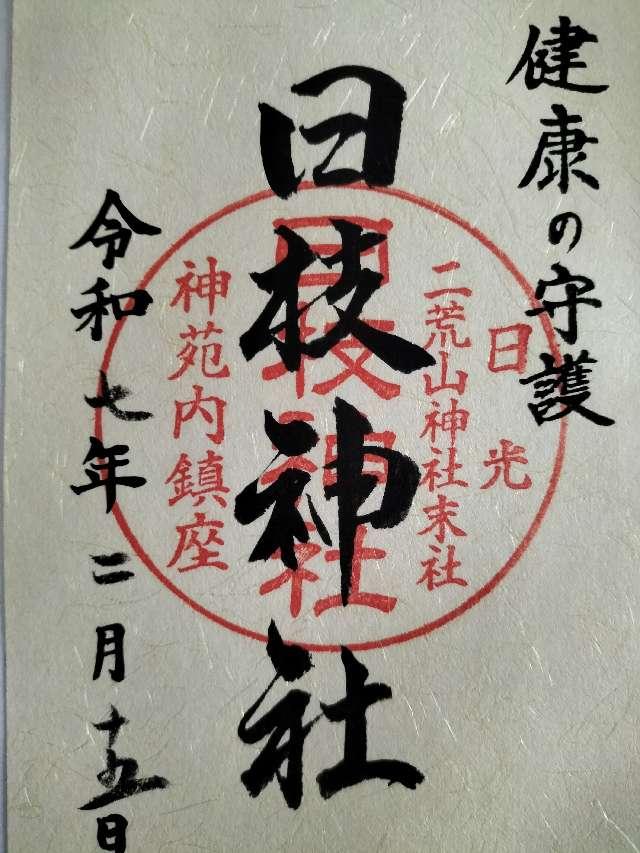 健康の守護
日光
二荒山神社末社
日枝神社
日枝神社
神苑内鎮座
令和七年二月十五日